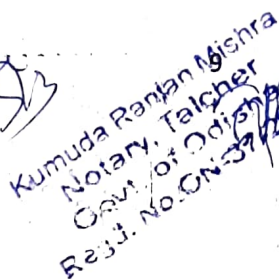 9
Kumuda Ranjan Mishra
Notary, Talcher
Govt. of Odisha
Regd. No.ON-